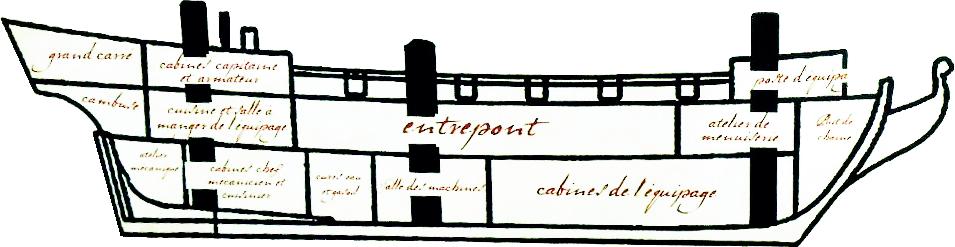 grand carré
cabines capitaine
et armateur
poste d'équipa
cambuse
cuisine et salle à
manger de l'équipage
entrepont
atelier de
menuiserie
Puit de
chaîne
atelier
mécanique
cabines chef
mécanicien et
cuisinier
cuves eau
et gasoil
alle des machines
cabines de l'équipage